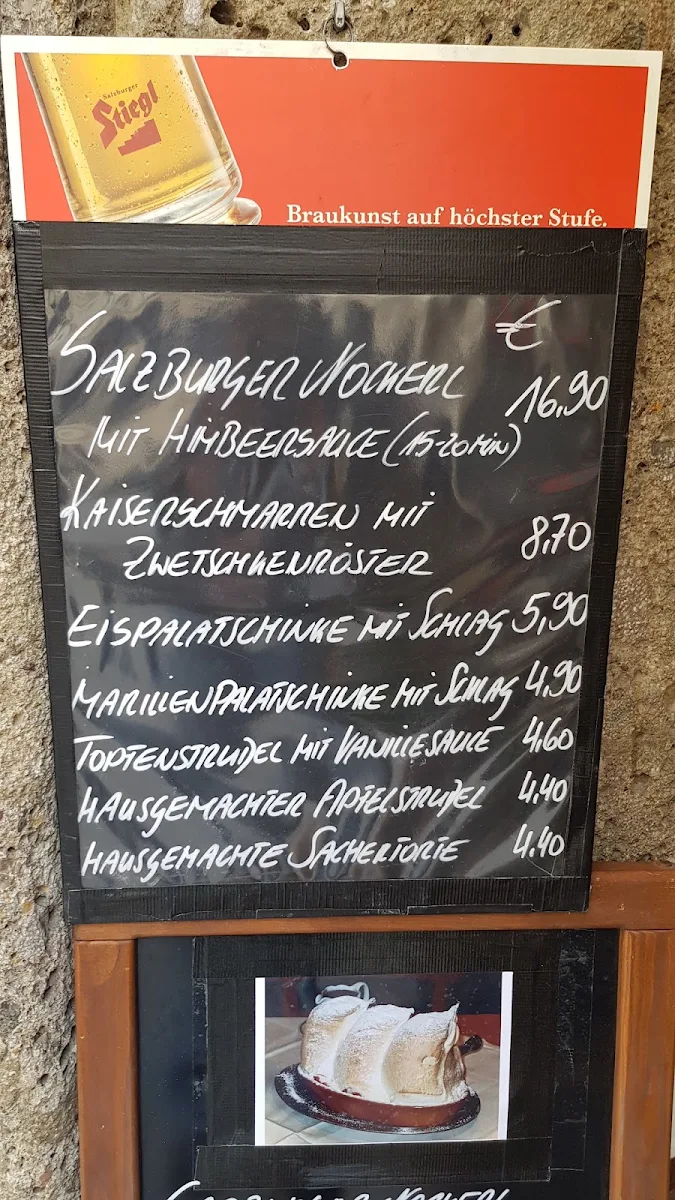 Salzburger
Stiegl
Braukunst auf höchster Stufe.
€
SALZBURGER NOCKERL 16,90
MIT HIMBEERSAUCE (15-20 MIN)
KAISERSCHMARREN MIT
ZWETSCHKENRÖSTER 8,70
EISPALATSCHINKE MIT SCHLAG 5,90
MARILLENPALATSCHINKE MIT SCHLAG 4,90
TOPFENSTRUDEL MIT VANILLESAUCE 4,60
HAUSGEMACHTER APFELSTRUDEL 4,40
HAUSGEMACHTE SACHERTORTE 4.40
SALZBURGER NOCKERL